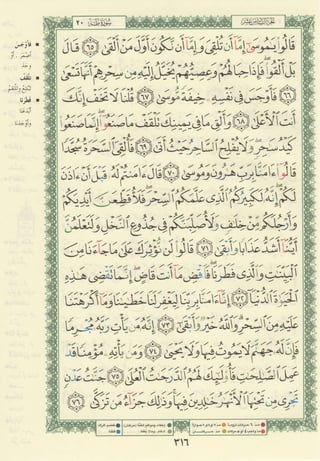 ٢٠ سُورَةُ طه الجُزءُ السَّادِسَ عَشَرَ
قَالُوا۟ يَٰمُوسَىٰٓ إِمَّآ أَن تُلْقِىَ وَإِمَّآ أَن نَّكُونَ أَوَّلَ مَنْ أَلْقَىٰ ٦٥ قَالَ
بَلْ أَلْقُوا۟ۖ فَإِذَا حِبَالُهُمْ وَعِصِيُّهُمْ يُخَيَّلُ إِلَيْهِ مِن سِحْرِهِمْ أَنَّهَا تَسْعَىٰ
٦٦ فَأَوْجَسَ فِى نَفْسِهِۦ خِيفَةً مُّوسَىٰ ٦٧ قُلْنَا لَا تَخَفْ إِنَّكَ
أَنتَ ٱلْأَعْلَىٰ ٦٨ وَأَلْقِ مَا فِى يَمِينِكَ تَلْقَفْ مَا صَنَعُوٓا۟ۖ إِنَّمَا صَنَعُوا۟
كَيْدُ سَٰحِرٍۖ وَلَا يُفْلِحُ ٱلسَّاحِرُ حَيْثُ أَتَىٰ ٦٩ فَأُلْقِىَ ٱلسَّحَرَةُ سُجَّدًا
قَالُوٓا۟ ءَامَنَّا بِرَبِّ هَٰرُونَ وَمُوسَىٰ ٧٠ قَالَ ءَامَنتُمْ لَهُۥ قَبْلَ أَنْ ءَاذَنَ
لَكُمْۖ إِنَّهُۥ لَكَبِيرُكُمُ ٱلَّذِى عَلَّمَكُمُ ٱلسِّحْرَۖ فَلَأُقَطِّعَنَّ أَيْدِيَكُمْ
وَأَرْجُلَكُم مِّنْ خِلَٰفٍ وَلَأُصَلِّبَنَّكُمْ فِى جُذُوعِ ٱلنَّخْلِ وَلَتَعْلَمُنَّ
أَيُّنَآ أَشَدُّ عَذَابًا وَأَبْقَىٰ ٧١ قَالُوا۟ لَن نُّؤْثِرَكَ عَلَىٰ مَا جَآءَنَا مِنَ
ٱلْبَيِّنَٰتِ وَٱلَّذِى فَطَرَنَاۖ فَٱقْضِ مَآ أَنتَ قَاضٍۖ إِنَّمَا تَقْضِى هَٰذِهِ
ٱلْحَيَوٰةَ ٱلدُّنْيَآ ٧٢ إِنَّآ ءَامَنَّا بِرَبِّنَا لِيَغْفِرَ لَنَا خَطَٰيَٰنَا وَمَآ أَكْرَهْتَنَا
عَلَيْهِ مِنَ ٱلسِّحْرِۗ وَٱللَّهُ خَيْرٌ وَأَبْقَىٰٓ ٧٣ إِنَّهُۥ مَن يَأْتِ رَبَّهُۥ مُجْرِمًا
فَإِنَّ لَهُۥ جَهَنَّمَ لَا يَمُوتُ فِيهَا وَلَا يَحْيَىٰ ٧٤ وَمَن يَأْتِهِۦ مُؤْمِنًا قَدْ
عَمِلَ ٱلصَّٰلِحَٰتِ فَأُو۟لَٰٓئِكَ لَهُمُ ٱلدَّرَجَٰتُ ٱلْعُلَىٰ ٧٥ جَنَّٰتُ عَدْنٍ
تَجْرِى مِن تَحْتِهَا ٱلْأَنْهَٰرُ خَٰلِدِينَ فِيهَاۚ وَذَٰلِكَ جَزَآءُ مَن تَزَكَّىٰ ٧٦
٣١٦
فَأَوْجَسَ
تَلْقَفْ
فَطَرَنَا